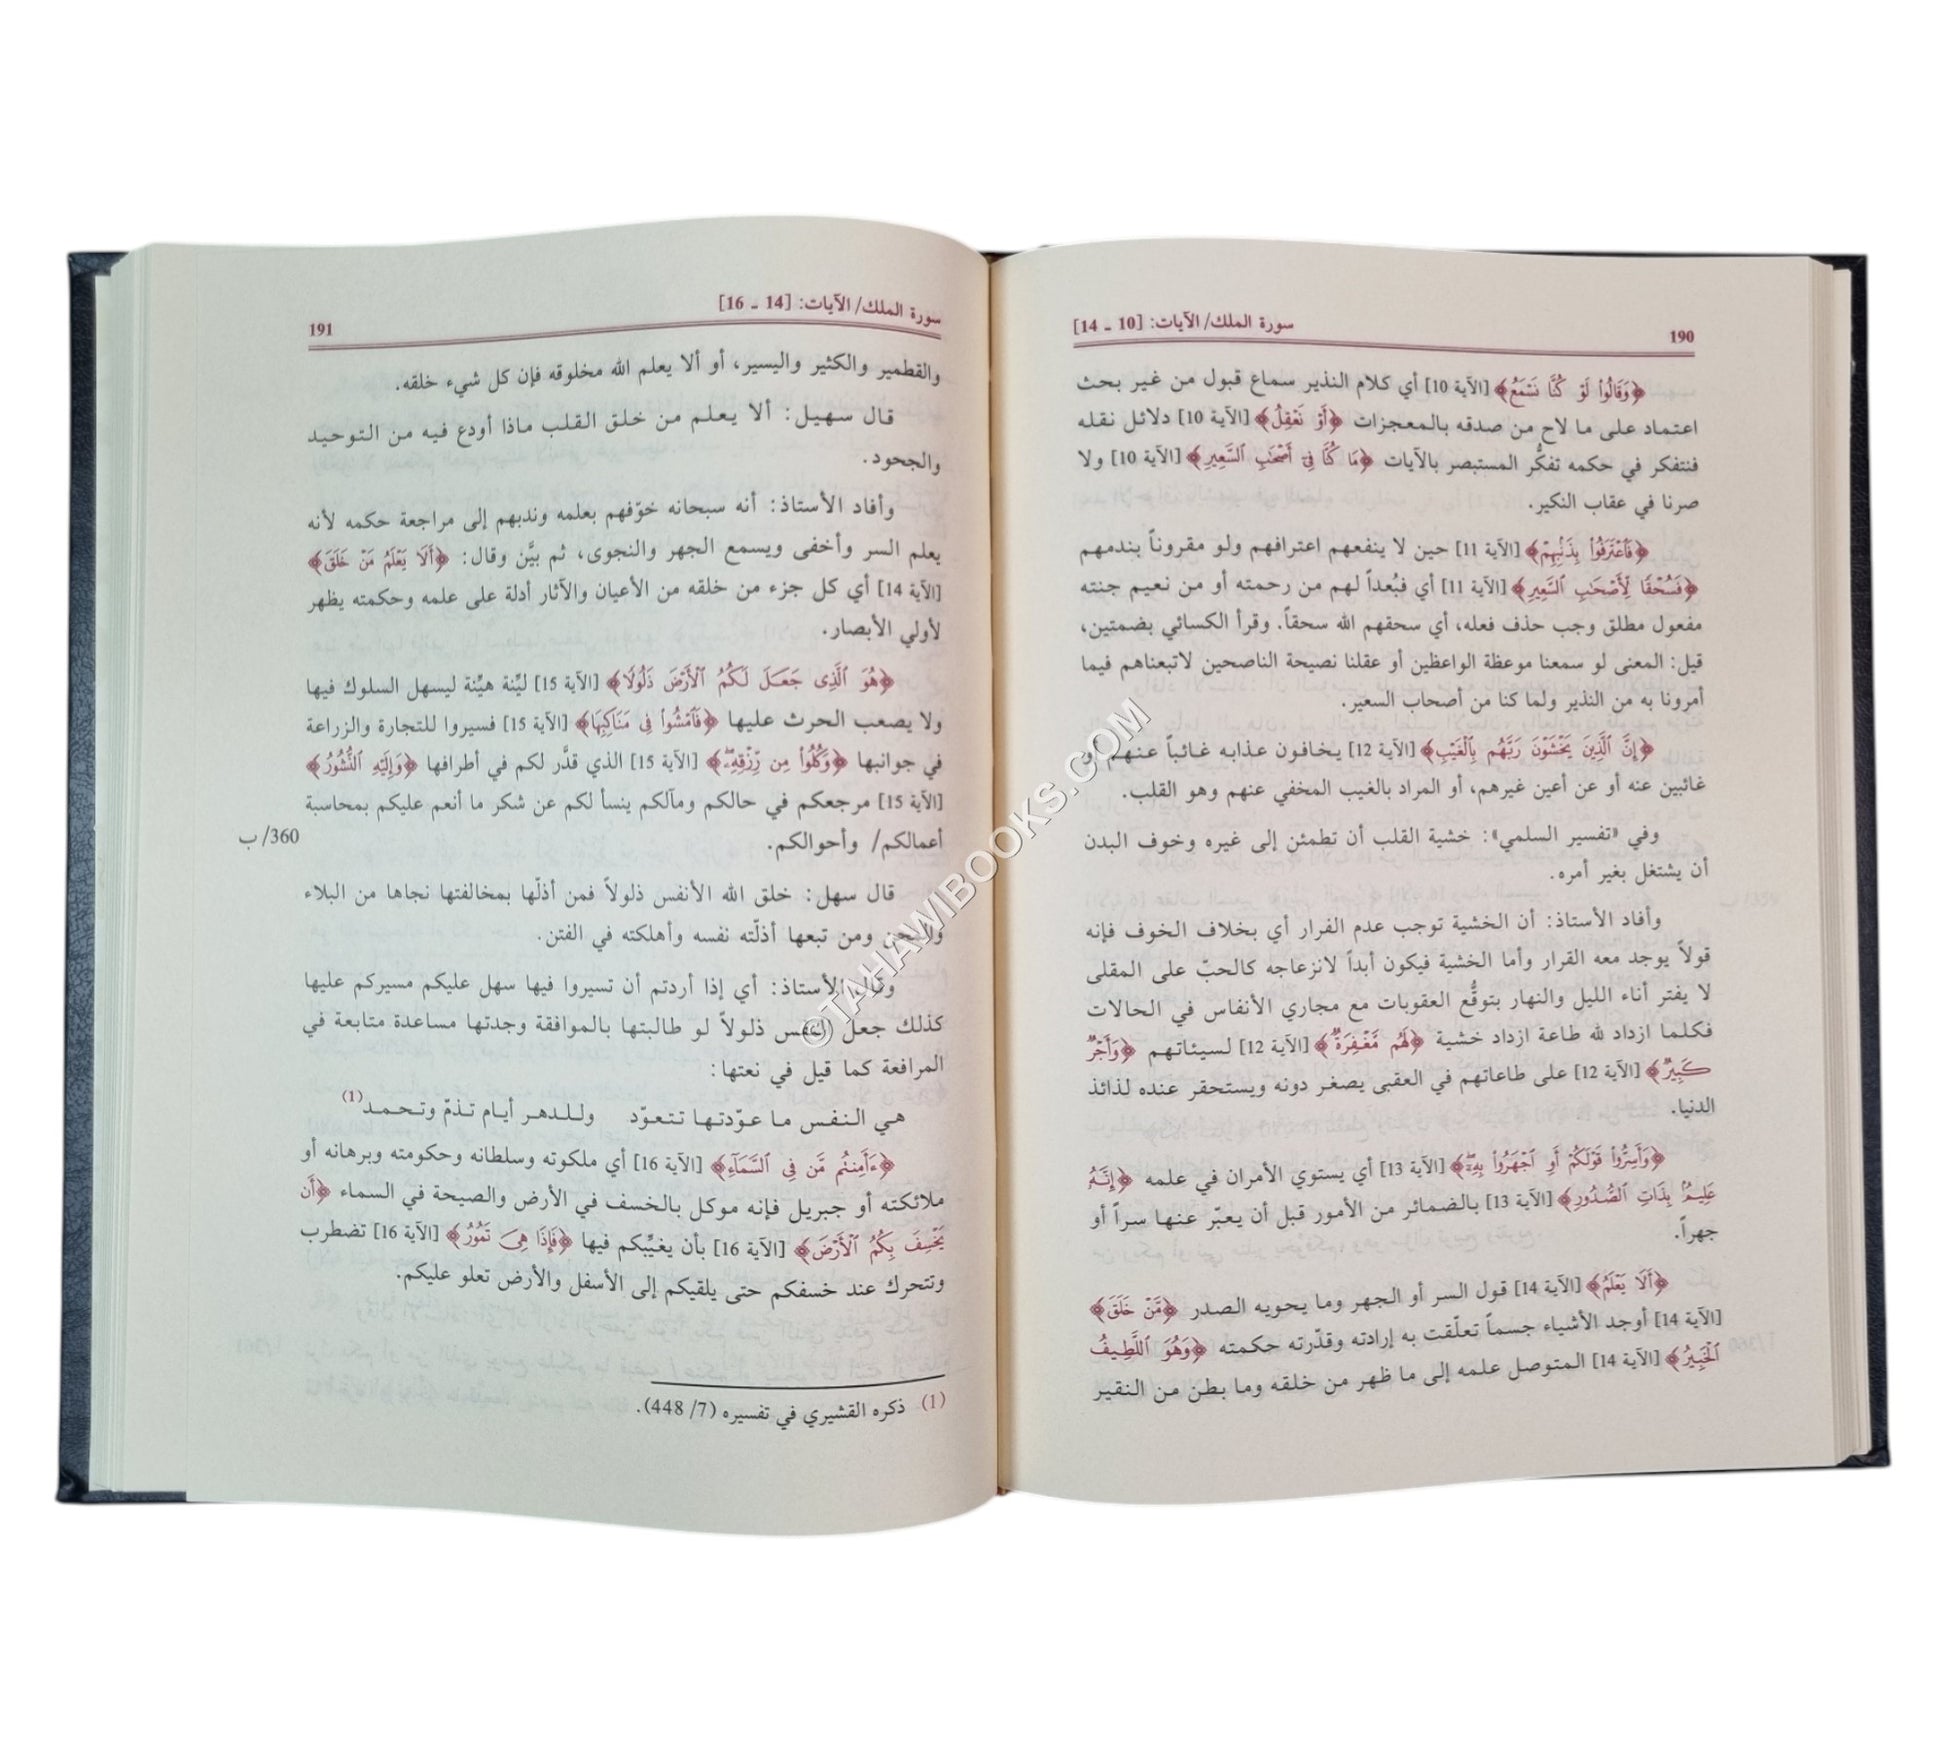 190
سورة الملك/ الآيات: [10 ـ 14]
﴿وَقَالُوا۟ لَوْ كُنَّا نَسْمَعُ﴾ [الآية 10] أي كلام النذير سماع قبول من غير بحث
اعتماد على ما لاح من صدقه بالمعجزات ﴿أَوْ نَعْقِلُ﴾ [الآية 10] دلائل نقله
فنتفكر في حكمه تفكُّر المستبصر بالآيات ﴿مَا كُنَّا فِىٓ أَصْحَٰبِ ٱلسَّعِيرِ﴾ [الآية 10] ولا
صرنا في عقاب النكير.
﴿فَٱعْتَرَفُوا۟ بِذَنۢبِهِمْ﴾ [الآية 11] حين لا ينفعهم اعترافهم ولو مقروناً بندمهم
﴿فَسُحْقًا لِّأَصْحَٰبِ ٱلسَّعِيرِ﴾ [الآية 11] أي فبُعداً لهم من رحمته أو من نعيم جنته
مفعول مطلق وجب حذف فعله، أي سحقهم الله سحقاً. وقرأ الكسائي بضمتين،
قيل: المعنى لو سمعنا موعظة الواعظين أو عقلنا نصيحة الناصحين لاتبعناهم فيما
أمرونا به من النذير ولما كنا من أصحاب السعير.
﴿إِنَّ ٱلَّذِينَ يَخْشَوْنَ رَبَّهُم بِٱلْغَيْبِ﴾ [الآية 12] يخافون عذابه غائباً عنهم أو
غائبين عنه أو عن أعين غيرهم، أو المراد بالغيب المخفي عنهم وهو القلب.
وفي «تفسير السلمي»: خشية القلب أن تطمئن إلى غيره وخوف البدن
أن يشتغل بغير أمره.
وأفاد الأستاذ: أن الخشية توجب عدم الفرار أي بخلاف الخوف فإنه
قولاً يوجد معه القرار وأما الخشية فيكون أبداً لانزعاجه كالحبّ على المقلى
لا يفتر أناء الليل والنهار بتوقُّع العقوبات مع مجاري الأنفاس في الحالات
فكلما ازداد لله طاعة ازداد خشية ﴿لَهُم مَّغْفِرَةٌ﴾ [الآية 12] لسيئاتهم ﴿وَأَجْرٌ
كَبِيرٌ﴾ [الآية 12] على طاعاتهم في العقبى يصغر دونه ويستحقر عنده لذائذ
الدنيا.
﴿وَأَسِرُّوا۟ قَوْلَكُمْ أَوِ ٱجْهَرُوا۟ بِهِۦٓ﴾ [الآية 13] أي يستوي الأمران في علمه ﴿إِنَّهُۥ
عَلِيمٌۢ بِذَاتِ ٱلصُّدُورِ﴾ [الآية 13] بالضمائر من الأمور قبل أن يعبّر عنها سراً أو
جهراً.
﴿أَلَا يَعْلَمُ﴾ [الآية 14] قول السر أو الجهر وما يحويه الصدر ﴿مَنْ خَلَقَ﴾
[الآية 14] أوجد الأشياء جسماً تعلّقت به إرادته وقدّرته حكمته ﴿وَهُوَ ٱللَّطِيفُ
ٱلْخَبِيرُ﴾ [الآية 14] المتوصل علمه إلى ما ظهر من خلقه وما بطن من النقير
سورة الملك/ الآيات: [14 ـ 16]
191
والقطمير والكثير واليسير، أو ألا يعلم الله مخلوقه فإن كل شيء خلقه.
قال سهيل: ألا يعلم من خلق القلب ماذا أودع فيه من التوحيد
والجحود.
وأفاد الأستاذ: أنه سبحانه خوّفهم بعلمه وندبهم إلى مراجعة حكمه لأنه
يعلم السر وأخفى ويسمع الجهر والنجوى، ثم بيَّن وقال: ﴿أَلَا يَعْلَمُ مَنْ خَلَقَ﴾
[الآية 14] أي كل جزء من خلقه من الأعيان والآثار أدلة على علمه وحكمته يظهر
لأولي الأبصار.
﴿هُوَ ٱلَّذِى جَعَلَ لَكُمُ ٱلْأَرْضَ ذَلُولًا﴾ [الآية 15] ليِّنة هيِّنة ليسهل السلوك فيها
ولا يصعب الحرث عليها ﴿فَٱمْشُوا۟ فِى مَنَاكِبِهَا﴾ [الآية 15] فسيروا للتجارة والزراعة
في جوانبها ﴿وَكُلُوا۟ مِن رِّزْقِهِۦ﴾ [الآية 15] الذي قدَّر لكم في أطرافها ﴿وَإِلَيْهِ ٱلنُّشُورُ﴾
[الآية 15] مرجعكم في حالكم ومآلكم ينسأ لكم عن شكر ما أنعم عليكم بمحاسبة
أعمالكم/ وأحوالكم.
360/ ب
قال سهل: خلق الله الأنفس ذلولاً فمن أذلّها بمخالفتها نجاها من البلاء
والمحن ومن تبعها أذلّته نفسه وأهلكته في الفتن.
وقال الأستاذ: أي إذا أردتم أن تسيروا فيها سهل عليكم مسيركم عليها
كذلك جعل النفس ذلولاً لو طالبتها بالموافقة وجدتها مساعدة متابعة في
المرافعة كما قيل في نعتها:
هي النفس ما عوّدتها تتعوّد وللدهر أيام تذمّ وتحمد(1)
﴿ءَأَمِنتُم مَّن فِى ٱلسَّمَآءِ﴾ [الآية 16] أي ملكوته وسلطانه وحكومته وبرهانه أو
ملائكته أو جبريل فإنه موكل بالخسف في الأرض والصيحة في السماء ﴿أَن
يَخْسِفَ بِكُمُ ٱلْأَرْضَ﴾ [الآية 16] بأن يغيِّبكم فيها ﴿فَإِذَا هِىَ تَمُورُ﴾ [الآية 16] تضطرب
وتتحرك عند خسفكم حتى يلقيكم إلى الأسفل والأرض تعلو عليكم.
(1) ذكره القشيري في تفسيره (7/ 448).
©TAHAWIBOOKS.COM